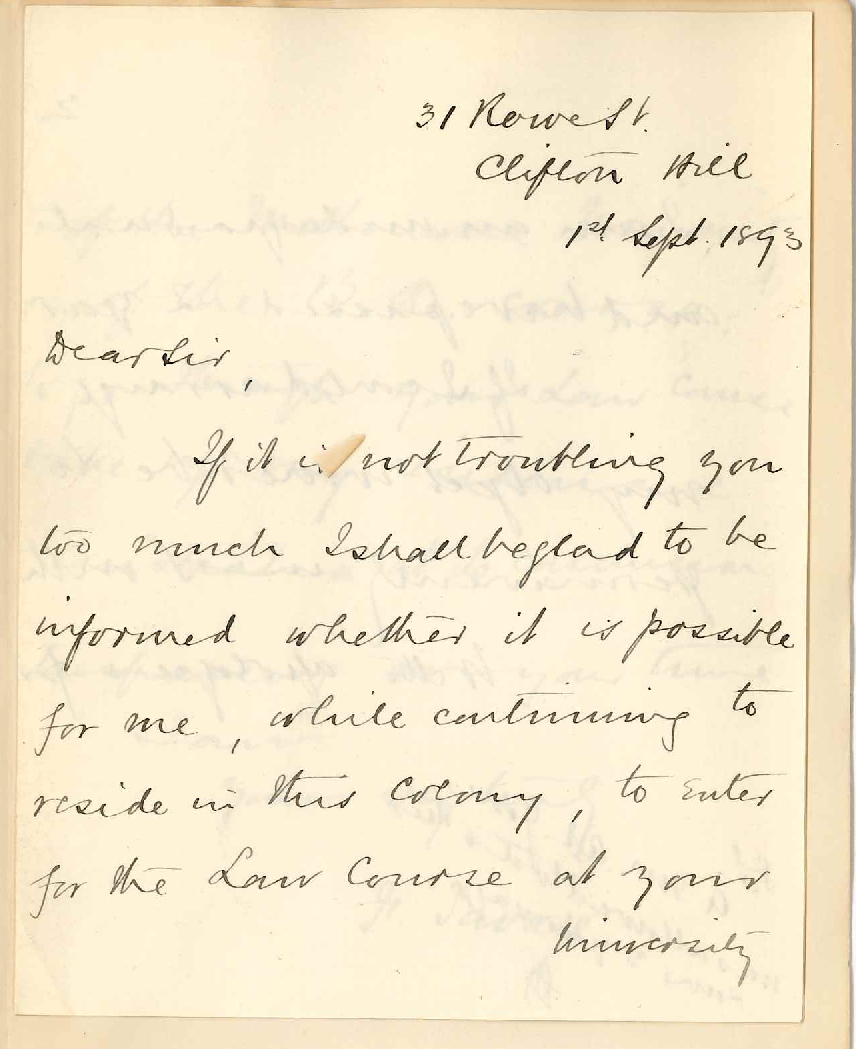 31 Rowe St.
Clifton Hill
1st Sept. 1893
Dear Sir,
If it is not troubling you
too much I shall be glad to be
informed whether it is possible
for me, while continuing to
reside in this Colony, to enter
for the Law Course at your
University